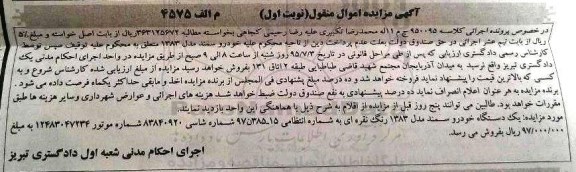 آگهی مزایده اموال منقول(نوبت اول) م الف ۴۵۷۵
در خصوص پرونده اجرائی کلاسه ۹۵۰۰۹۵ ج م ۱ له محمدرضا تکبیری علیه رضا رحیمی کجاهی بخواسته مطالبه ۳۶۳۱۲۵۶۷۲ریال از بابت اصل خواسته و مبلغ
ریال از بابت نیم عشر اجرائی در حق صندوق دولت بعلت عدم پرداخت دین از ناحیه محکوم علیه خودرو سمند مدل ۱۳۸۳ متعلق به محکوم علیه توقیف سپس توسط
کارشناس رسمی دادگستری ارزیابی که پس از طی مراحل قانونی در تاریخ ۹۵/۷/۳ روز شنبه از ساعت ۸ الی ۹ صبح از طریق مزایده در واحد اجرای احکام مدنی یک
دادگستری تبریز واقع نرسید به میدان آذربایجان مجتمع شهید قاضی طباطبایی طبقه ۱ اتاق ۱۳۱ بفروش خواهد رسید مزایده از مبلغ ارزیابی شده کارشناس شروع و به
کسی که بالاترین قیمت را پیشنهاد نماید فروخته خواهد شد و ده درصد مبلغ پیشنهادی فی المجلس از برنده مزایده اخذ و مابقی حداکثر یکماه فرصت داده می شود.
برنده مزایده به هر عنوان اعلام انصراف نماید ده درصد پیشنهادی به نفع صندوق دولت ضبط خواهد شد هزینه های اجرائی و عوارض شهرداری وسایر هزینه ها طبق
مقررات خواهد بود. طالبین می توانند پنج روز قبل از مزایده از اقلام به شرح ذیل با هماهنگی این واحد بازدید نمایند.
مورد مزایده: یک دستگاه خودرو سمند مدل ۱۳۸۳ رنگ نقره ای به شماره انتظامی ۱۵_۳۸۵ن۹۷ شماره شاسی ۸۳۸۴۰۹۲۰ شماره موتور ۱۲۴۸۳۰۴۷۲۳۴ به مبلغ
۹۷/۰۰۰/۰۰۰ ریال بفروش می رسد.
اجرای احکام مدنی شعبه اول دادگستری تبریز